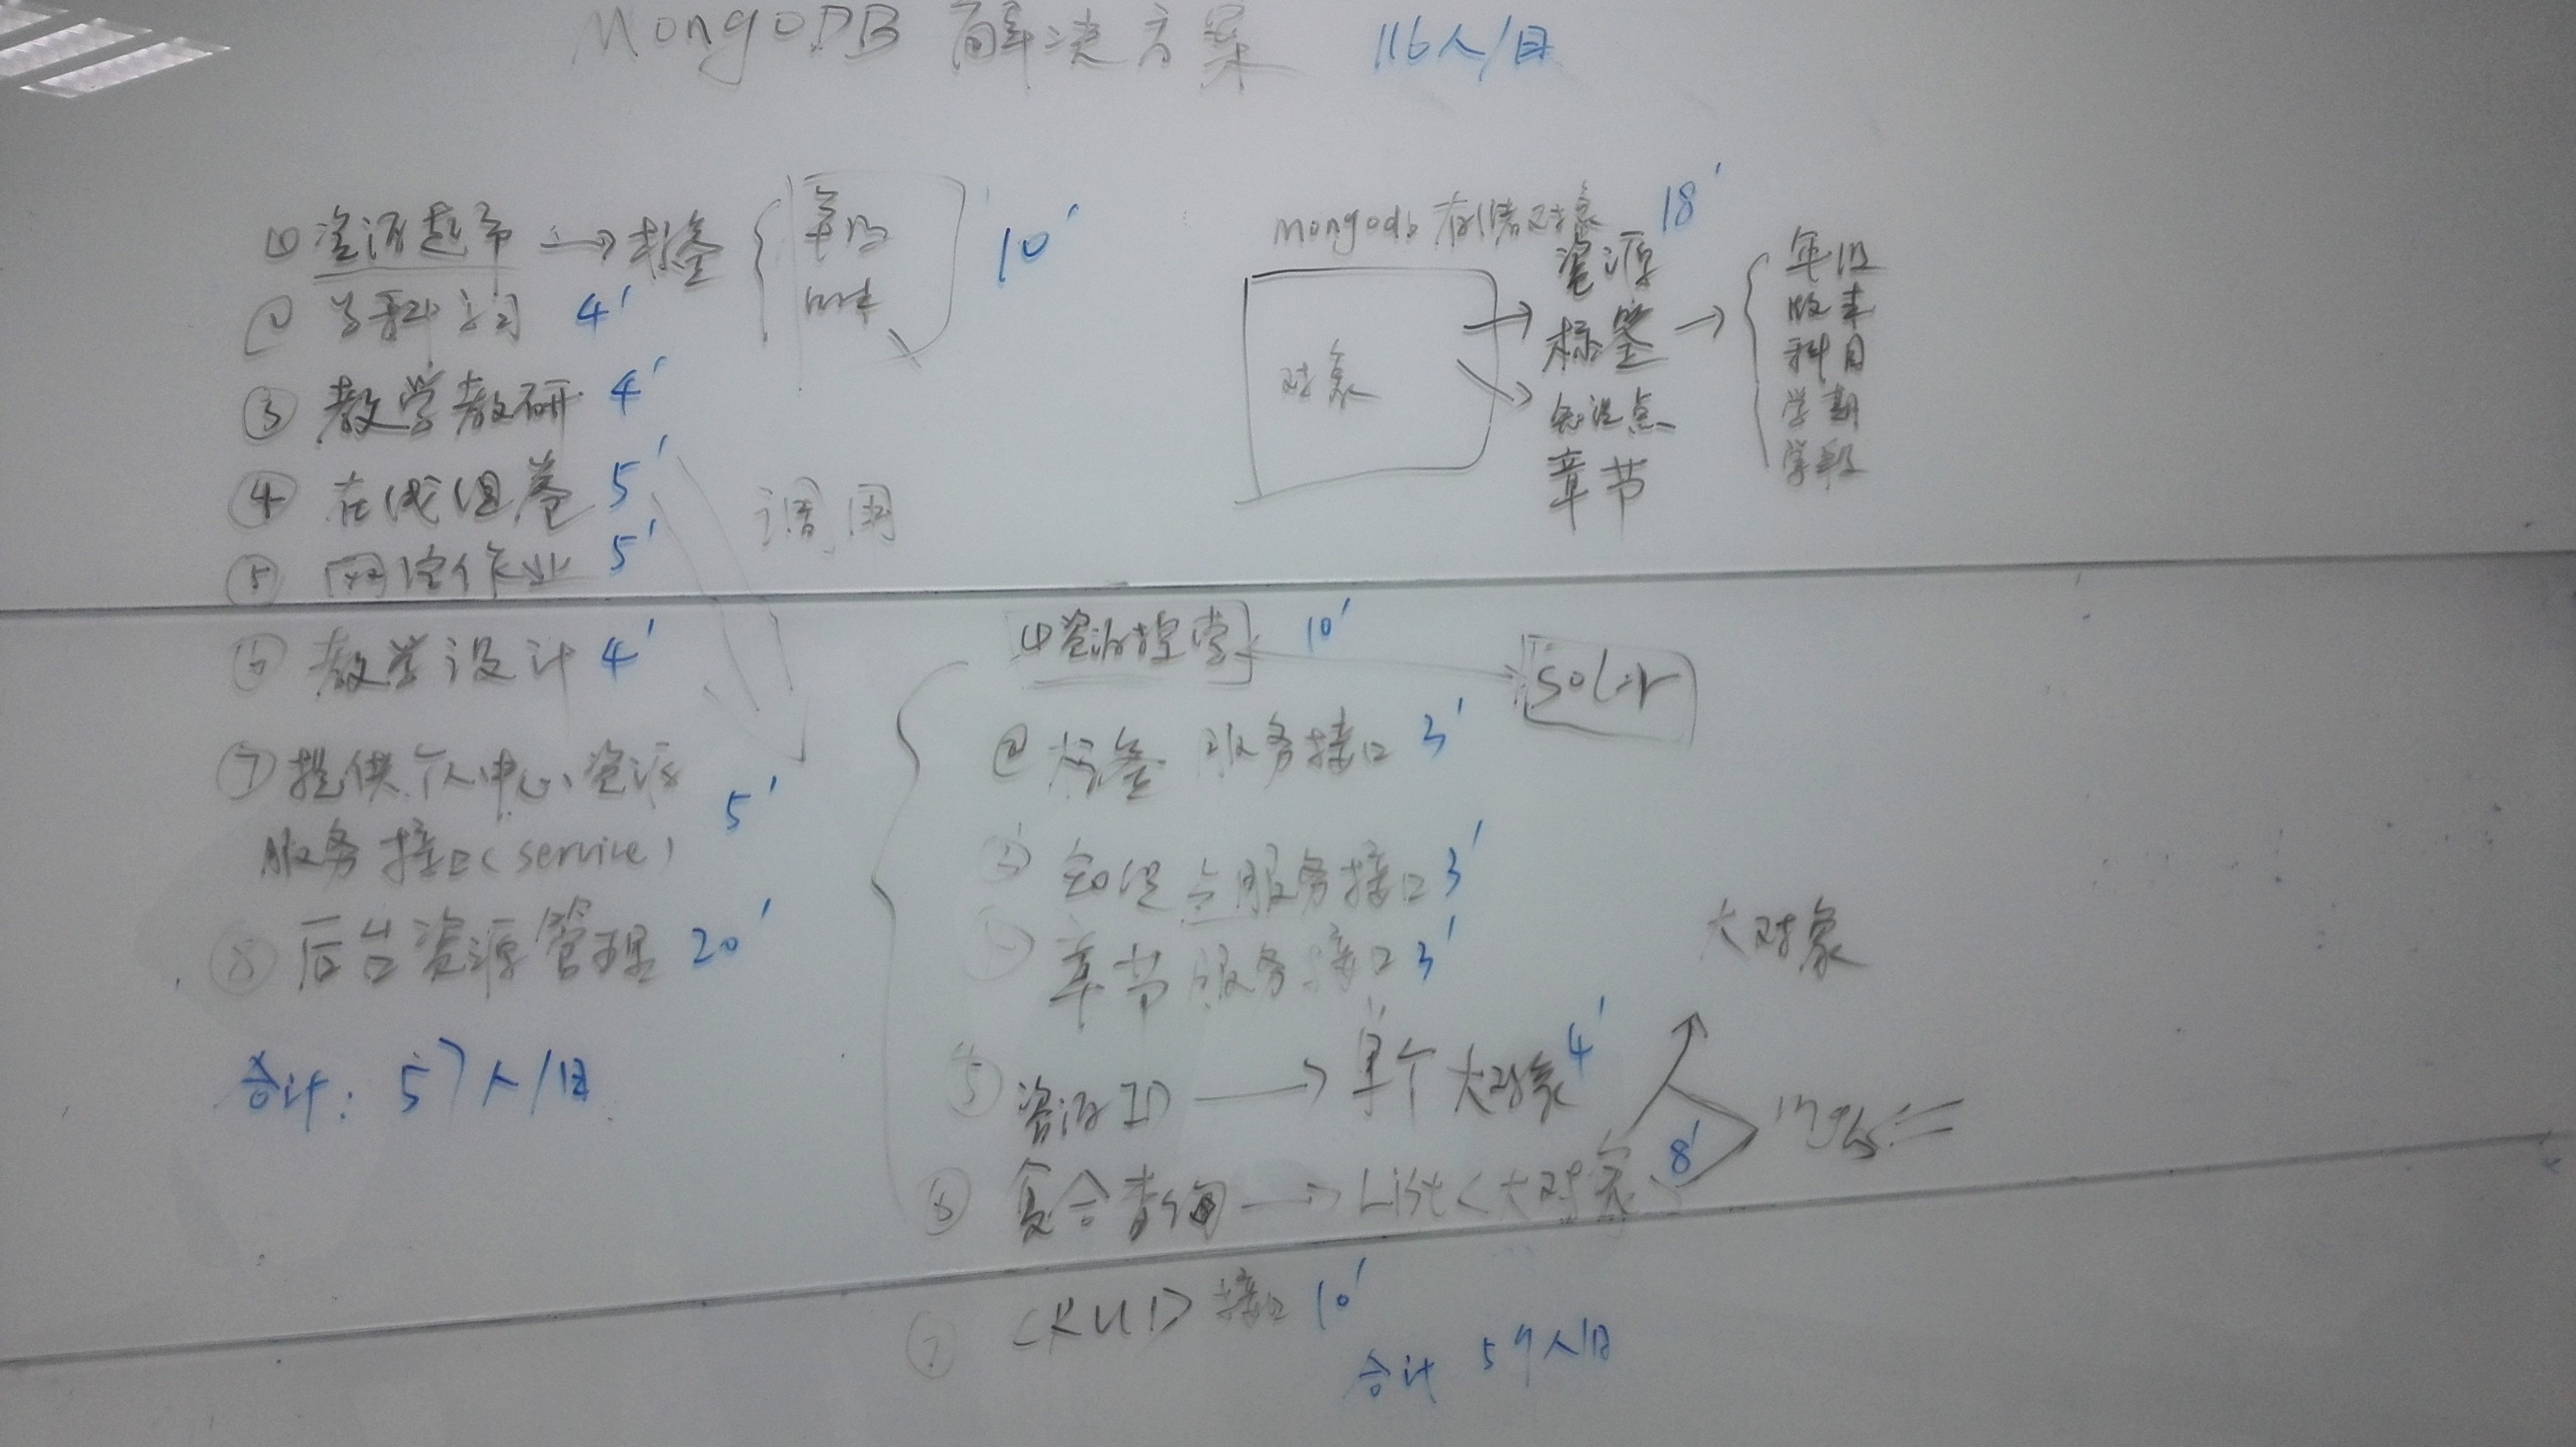 MongoDB 解决方案 116人/日
① 资源超市 → 标签 10'
② 学科学习 4'
③ 教学教研 4'
④ 在线组卷 5'
⑤ 网络作业 5'
⑥ 教学设计 4'
⑦ 提供个人中心、资源
服务接口(service) 5'
⑧ 后台资源管理 20'
合计: 57人/日
调用
mongodb 存储对象 18'
对象
资源
标签 →
知识点
章节
年级
版本
科目
学期
学段
① 资源检索 10'
solr
② 标签 服务接口 3'
③ 知识点服务接口 3'
④ 章节服务接口 3'
⑤ 资源ID → 单个大对象 4'
⑥ 复合查询 → List<大对象> 8'
大对象
⑦ CRUD 接口 10'
合计 59人/日